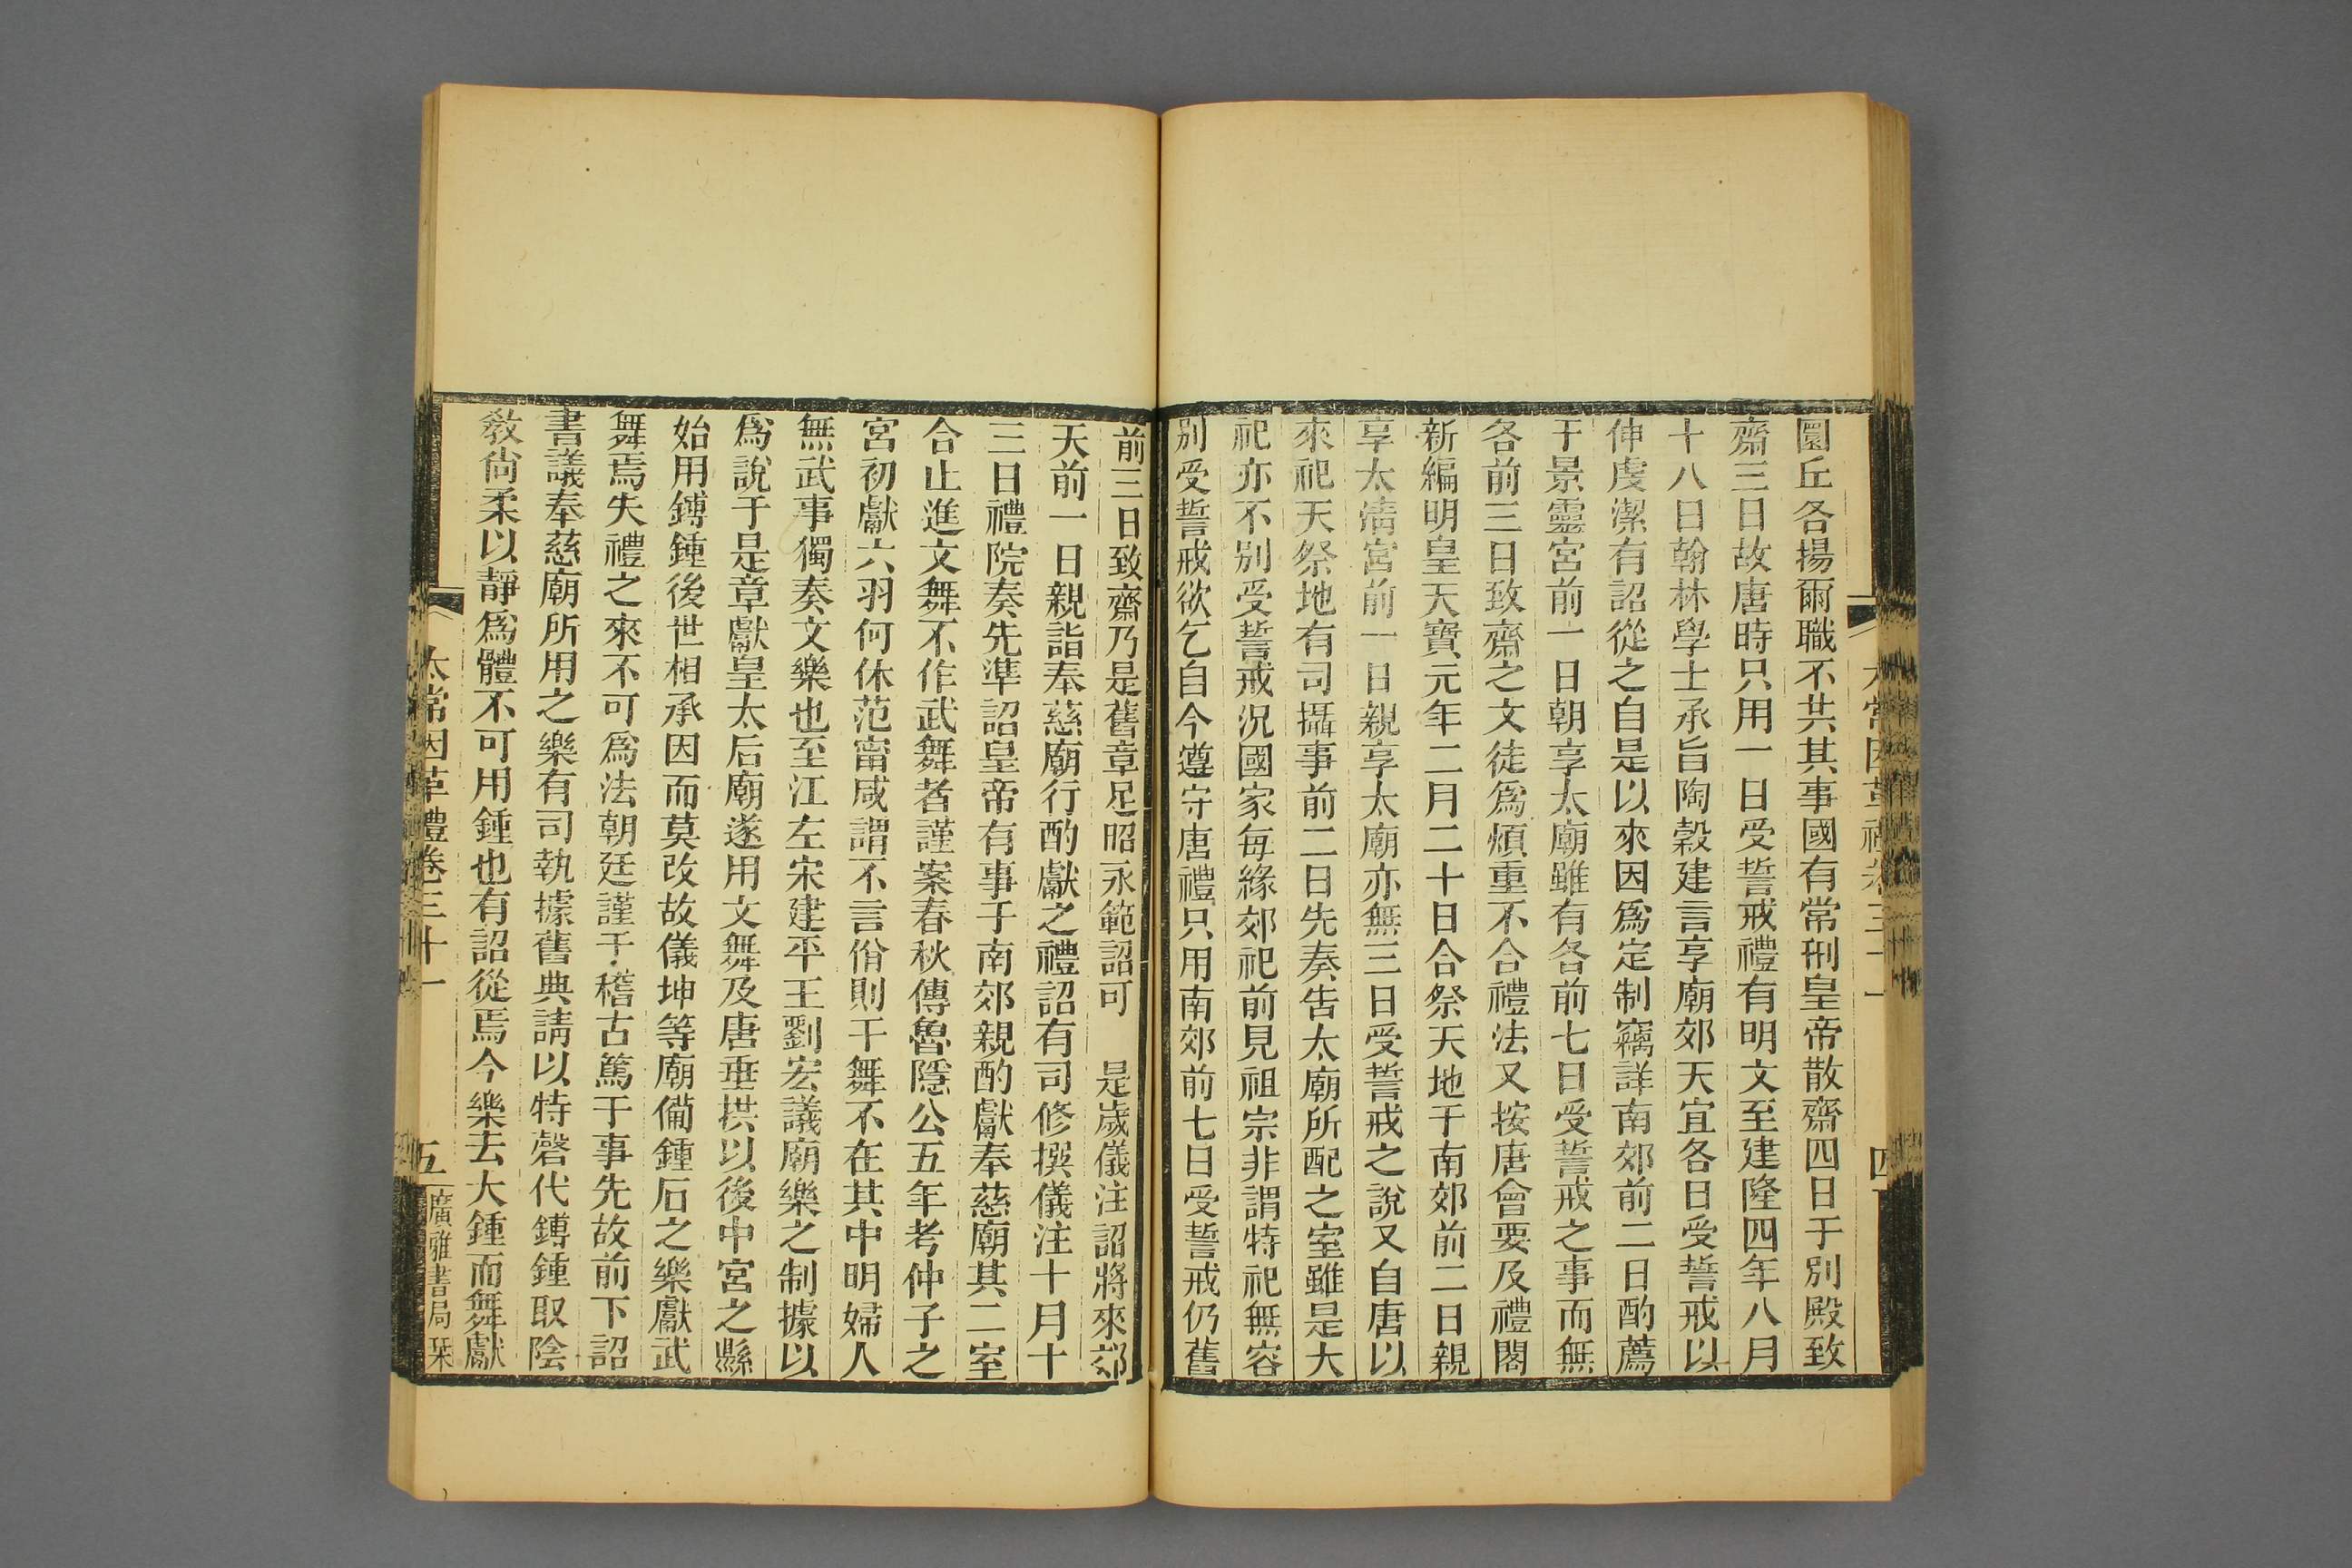 圜丘各揚爾職不共其事國有常刑皇帝散齋四日于別殿致
齋三日故唐時只用一日受誓戒禮有明文至建隆四年八月
十八日翰林學士承旨陶穀建言享廟郊天宜各日受誓戒以
伸虔潔有詔從之自是以來因爲定制竊詳南郊前二日酌薦
于景靈宮前一日朝享太廟雖有各前七日受誓戒之事而無
各前三日致齋之文徒爲煩重不合禮法又按唐會要及禮閣
新編明皇天寶元年二月二十日合祭天地于南郊前二日親
享太淸宮前一日親享太廟亦無三日受誓戒之說又自唐以
來祀天祭地有司攝事前二日先奏告太廟所配之室雖是大
祀亦不別受誓戒況國家每緣郊祀前見祖宗非謂特祀無容
別受誓戒欲乞自今遵守唐禮只用南郊前七日受誓戒仍舊
太常因革禮卷三十一
四
前三日致齋乃是舊章足昭永範詔可　是歲儀注詔將來郊
天前一日親詣奉慈廟行酌獻之禮詔有司修撰儀注十月十
三日禮院奏先準詔皇帝有事于南郊親酌獻奉慈廟其二室
合止進文舞不作武舞者謹案春秋傳魯隱公五年考仲子之
宮初獻六羽何休范甯咸謂不言佾則干舞不在其中明婦人
無武事獨奏文樂也至江左宋建平王劉宏議廟樂之制據以
爲說于是章獻皇太后廟遂用文舞及唐垂拱以後中宮之縣
始用鎛鍾後世相承因而莫改故儀坤等廟僃鍾石之樂獻武
舞焉失禮之來不可爲法朝廷謹于稽古篤于事先故前下詔
書議奉慈廟所用之樂有司執據舊典請以特磬代鎛鍾取陰
敎尙柔以靜爲體不可用鍾也有詔從焉今樂去大鍾而舞獻
太常因革禮卷三十一
五
廣雅書局栞